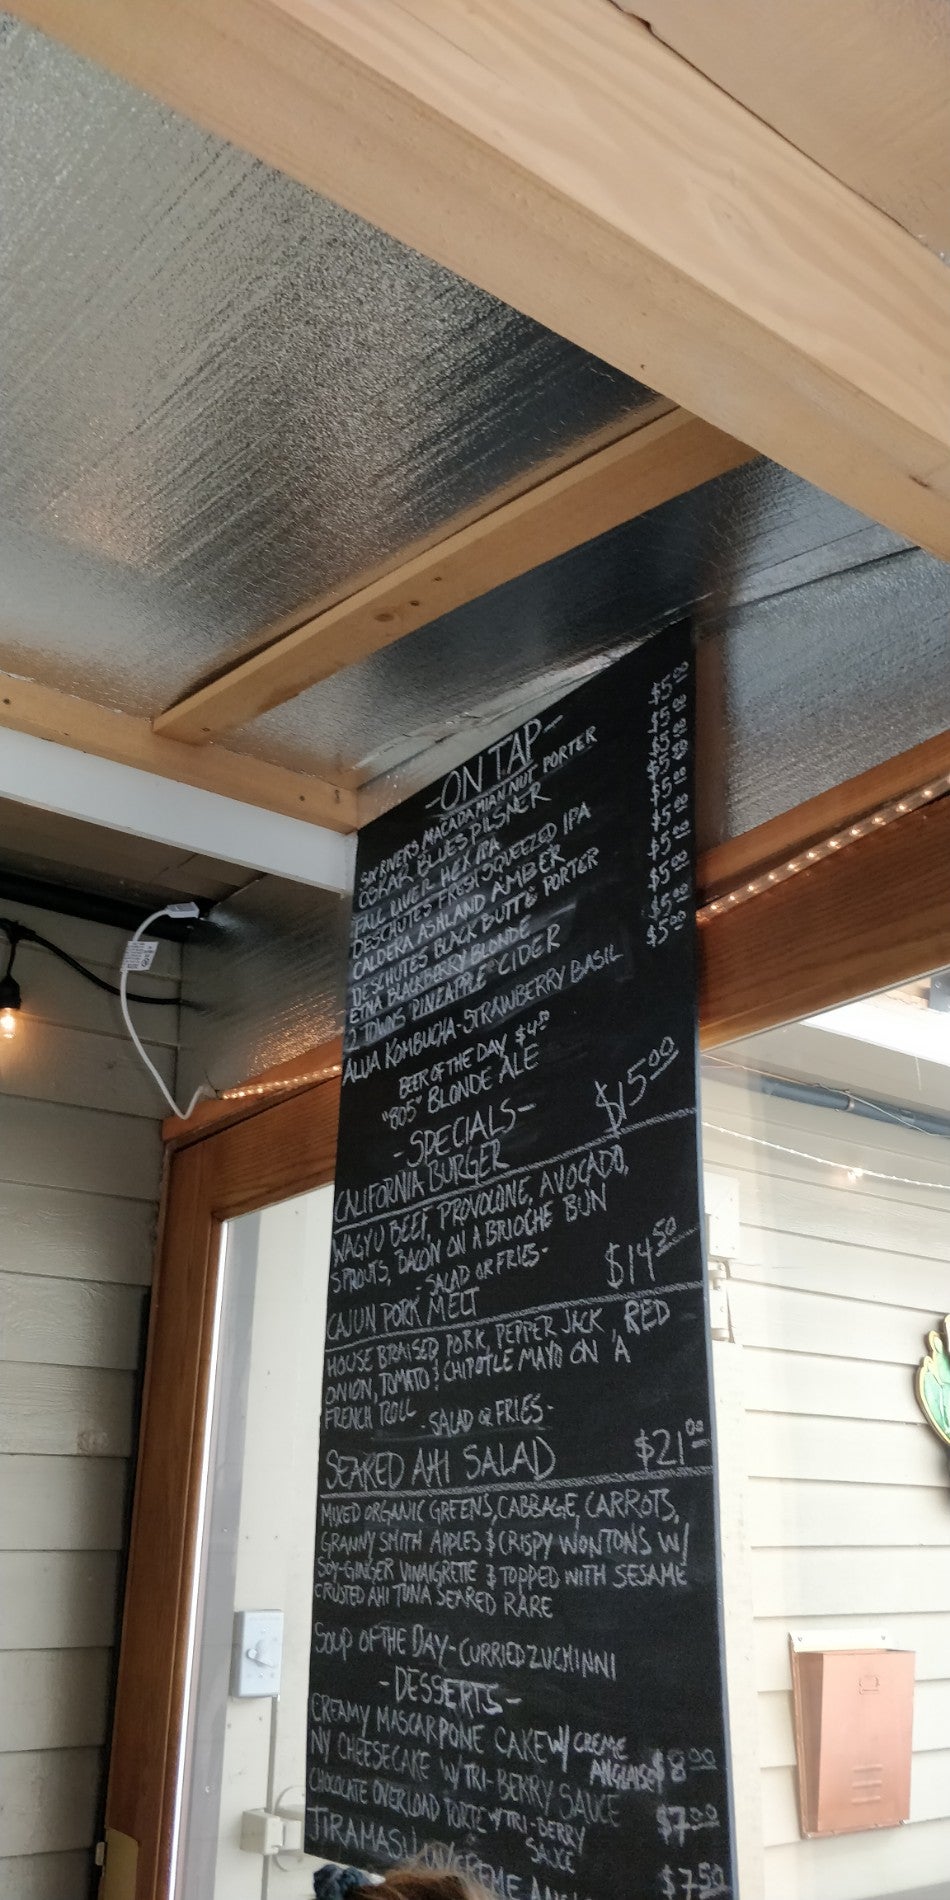 -ON TAP-
SIX RIVERS MACADAMIAN NUT PORTER $5.00
OSKAR BLUES PILSNER $5.00
FALL RIVER HEX IPA $5.00
DESCHUTES FRESH SQUEEZED IPA $5.00
CALDERA ASHLAND AMBER $5.00
DESCHUTES BLACK BUTTE PORTER $5.00
ETNA BLACKBERRY BLONDE $5.00
2 TOWNS PINEAPPLE CIDER $5.00
ALLIA KOMBUCHA-STRAWBERRY BASIL $5.00
BEER OF THE DAY $4.50
"805" BLONDE ALE
-SPECIALS-
CALIFORNIA BURGER $15.00
WAGYU BEEF, PROVOLONE, AVOCADO,
SPROUTS, BACON ON A BRIOCHE BUN
-SALAD OR FRIES-
CAJUN PORK MELT $14.50
HOUSE BRAISED PORK, PEPPER JACK, RED
ONION, TOMATO & CHIPOTLE MAYO ON A
FRENCH ROLL -SALAD OR FRIES-
SEARED AHI SALAD $21.00
MIXED ORGANIC GREENS, CABBAGE, CARROTS,
GRANNY SMITH APPLES & CRISPY WONTONS W/
SOY-GINGER VINAIGRETTE & TOPPED WITH SESAME
CRUSTED AHI TUNA SEARED RARE
SOUP OF THE DAY-CURRIED ZUCHINNI
-DESSERTS-
CREAMY MASCARPONE CAKE W/ CREME
ANGLAISE $8.00
NY CHEESECAKE W/ TRI-BERRY SAUCE $7.00
CHOCOLATE OVERLOAD TORTE W/ TRI-BERRY
SAUCE $7.50
TIRAMASU W/ CREME